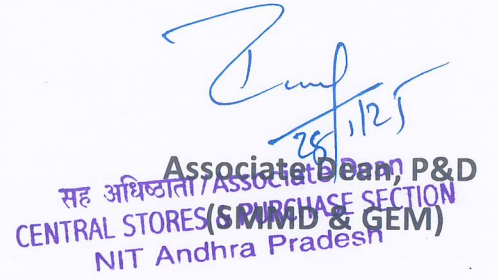 28/1/25
Associate Dean, P&D
(SMMD & GEM)
सह अधिष्ठाता / Associate Dean
CENTRAL STORES & PURCHASE SECTION
NIT Andhra Pradesh